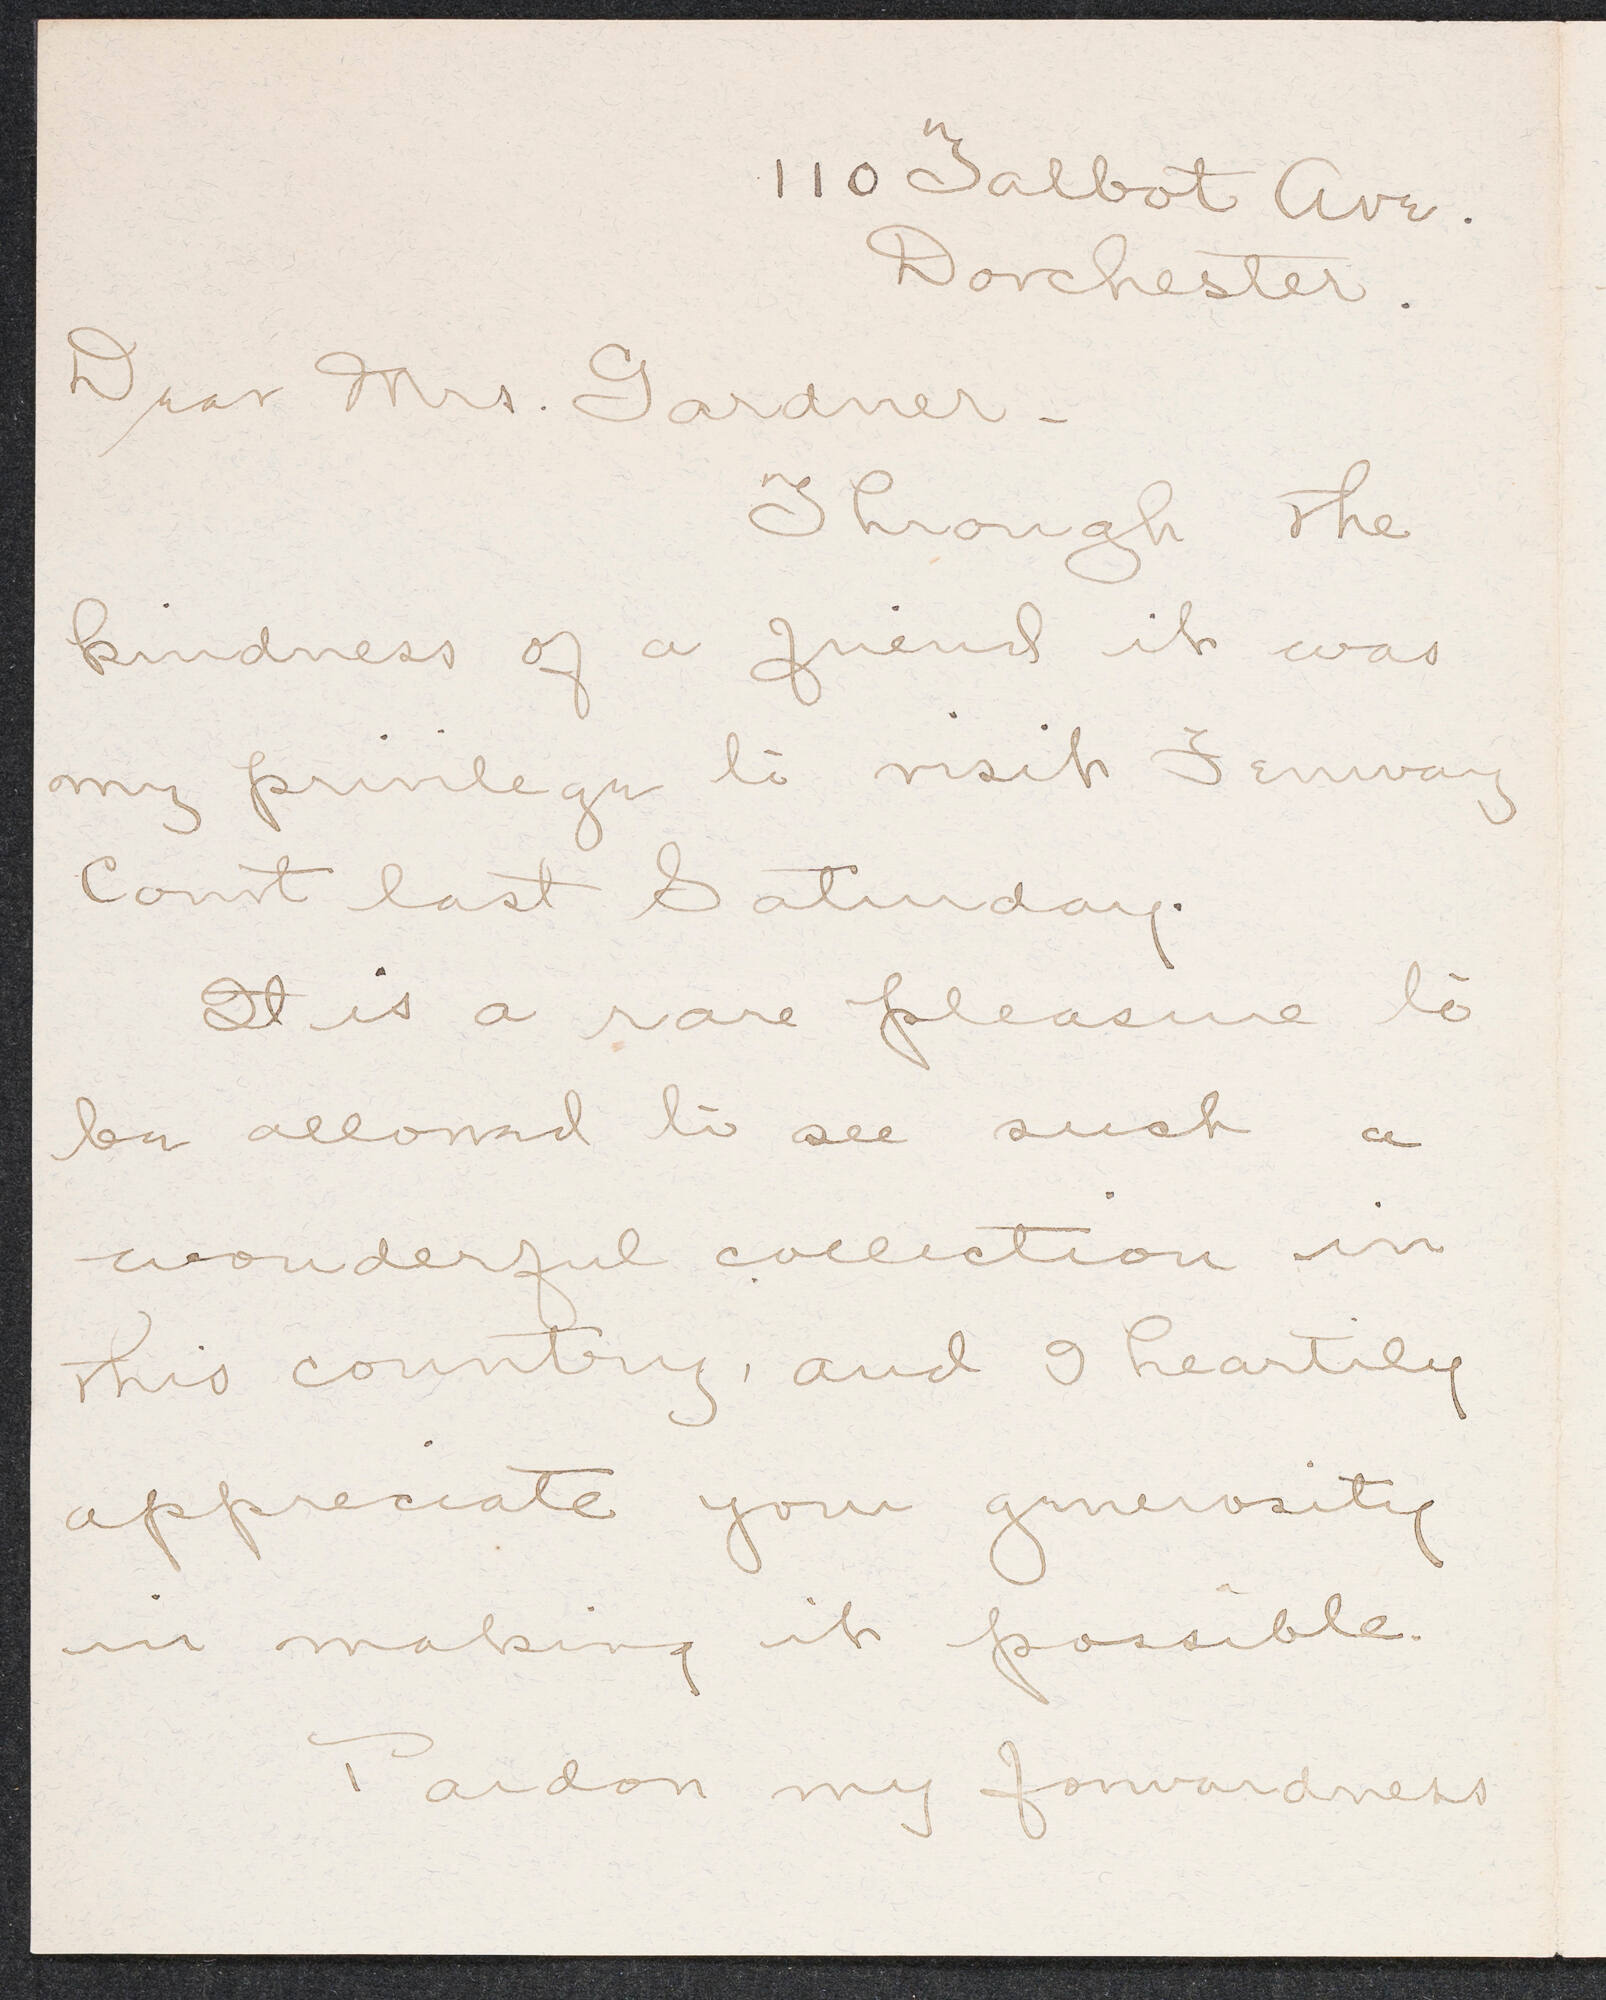 110 Talbot Ave.
Dorchester.
Dear Mrs. Gardner -
Through the
kindness of a friend it was
my privilege to visit Fenway
Court last Saturday.
It is a rare pleasure to
be allowed to see such a
wonderful collection in
this country, and I heartily
appreciate your generosity
in making it possible.
Pardon my forwardness